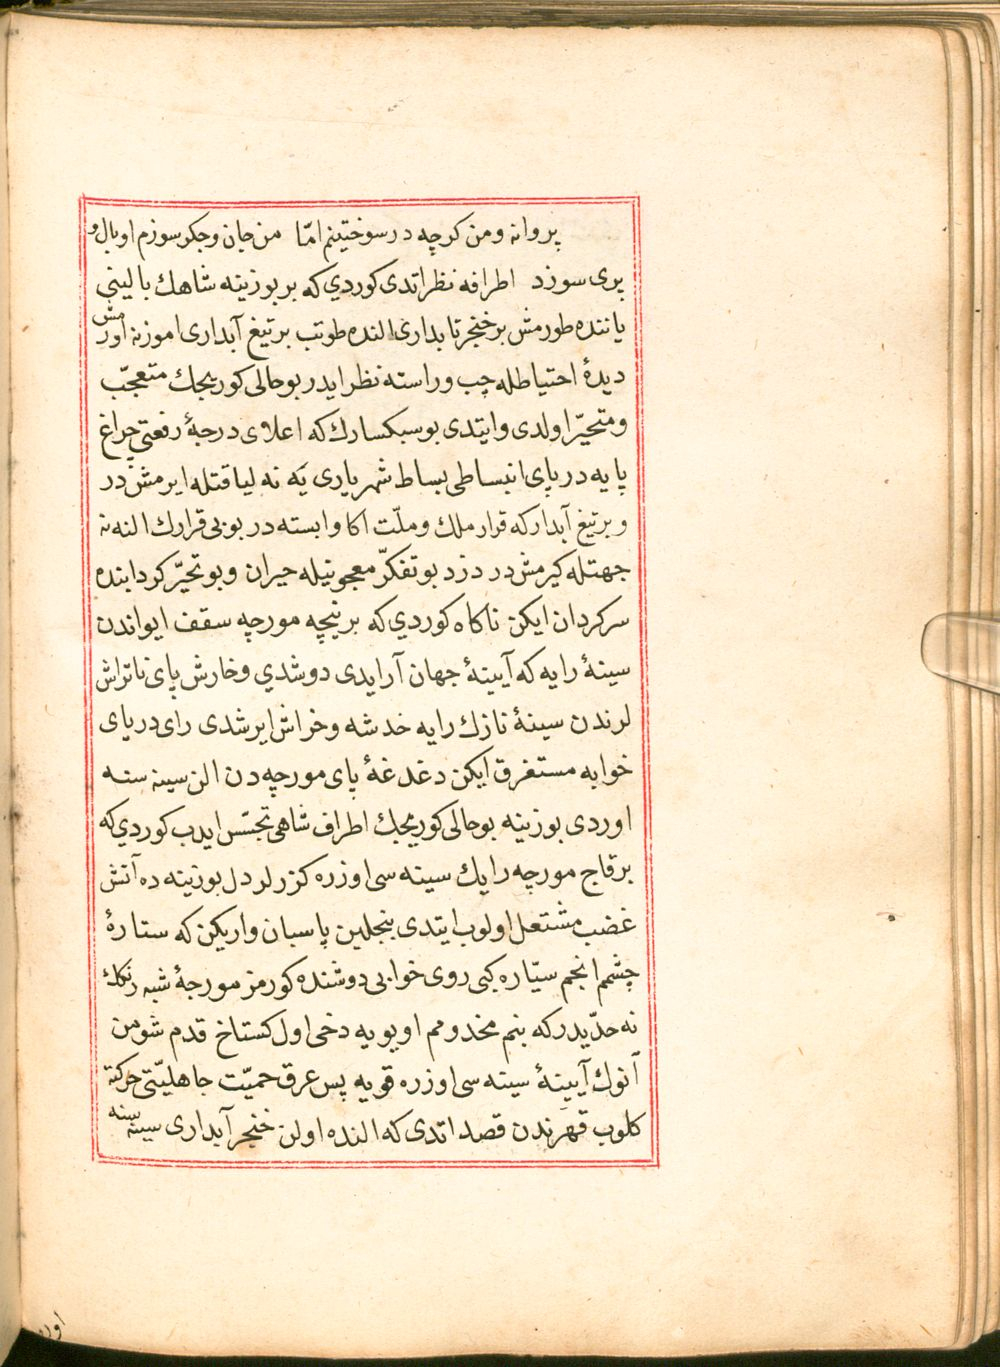 پروانه و من کرچه در سوختنیم امّا من جان و جکر سوزم او بال و
پری سوزد اطرافه نظر اتدی کوردی که بر بوزینه شاهك بالینی
یاننده طورمش بر خنجر تابداری النده طوتب بر تیغ آبداری اموزنه اورمش
دیدهٔ احتیاطله چپ و راسته نظر ایدر بو حالی کوریجك متعجّب
و متحیّر اولدی و ایتدی بو سبکسارك که اعلای درجهٔ رفعتی چراغ
پایه در پای انبساطی بساط شهریاری یه نه لیاقتله ایرمش در
و بر تیغ آبدار که قرار ملك و ملّت اکا وابسته در بو بی قرارك النه نه
جهتله کیرمش در دزد بو تفکّر معجونیله حیران و بو تحیّر کردابنده
سرکردان ایکن ناکاه کوردی که بر نیچه مورچه سقف ایواندن
سینهٔ رایه که آیینهٔ جهان آرایدی دوشدی و خارش پای ناتراش
لرندن سینهٔ نازك رایه خدشه و خراش ایرشدی رای دریای
خوابه مستغرق ایکن دغدغهٔ پای مورچه دن الن سینه سنه
اوردی بوزینه بو حالی کوریجك اطراف شاهی تجسّس ایدب کوردی که
بر قاج مورچه رایك سینه سی اوزره کزرلر دل بوزینه ده آتش
غضب مشتعل اولوب ایتدی بنجلین پاسبان وار یکن که ستارهٔ
چشم انجم سیّاره کبی روی خوابی دوشنده کورمز مورجهٔ شبه رنکك
نه حدّیدر که بنم مخدومم اویویه دخی اول کستاخ قدم شومن
آنوك آیینهٔ سینه سی اوزره قویه پس عرق حمیّت جاهلیّتی حرکته
کلوب قهرندن قصد اتدی که النده اولن خنجر آبداری سینه سنه